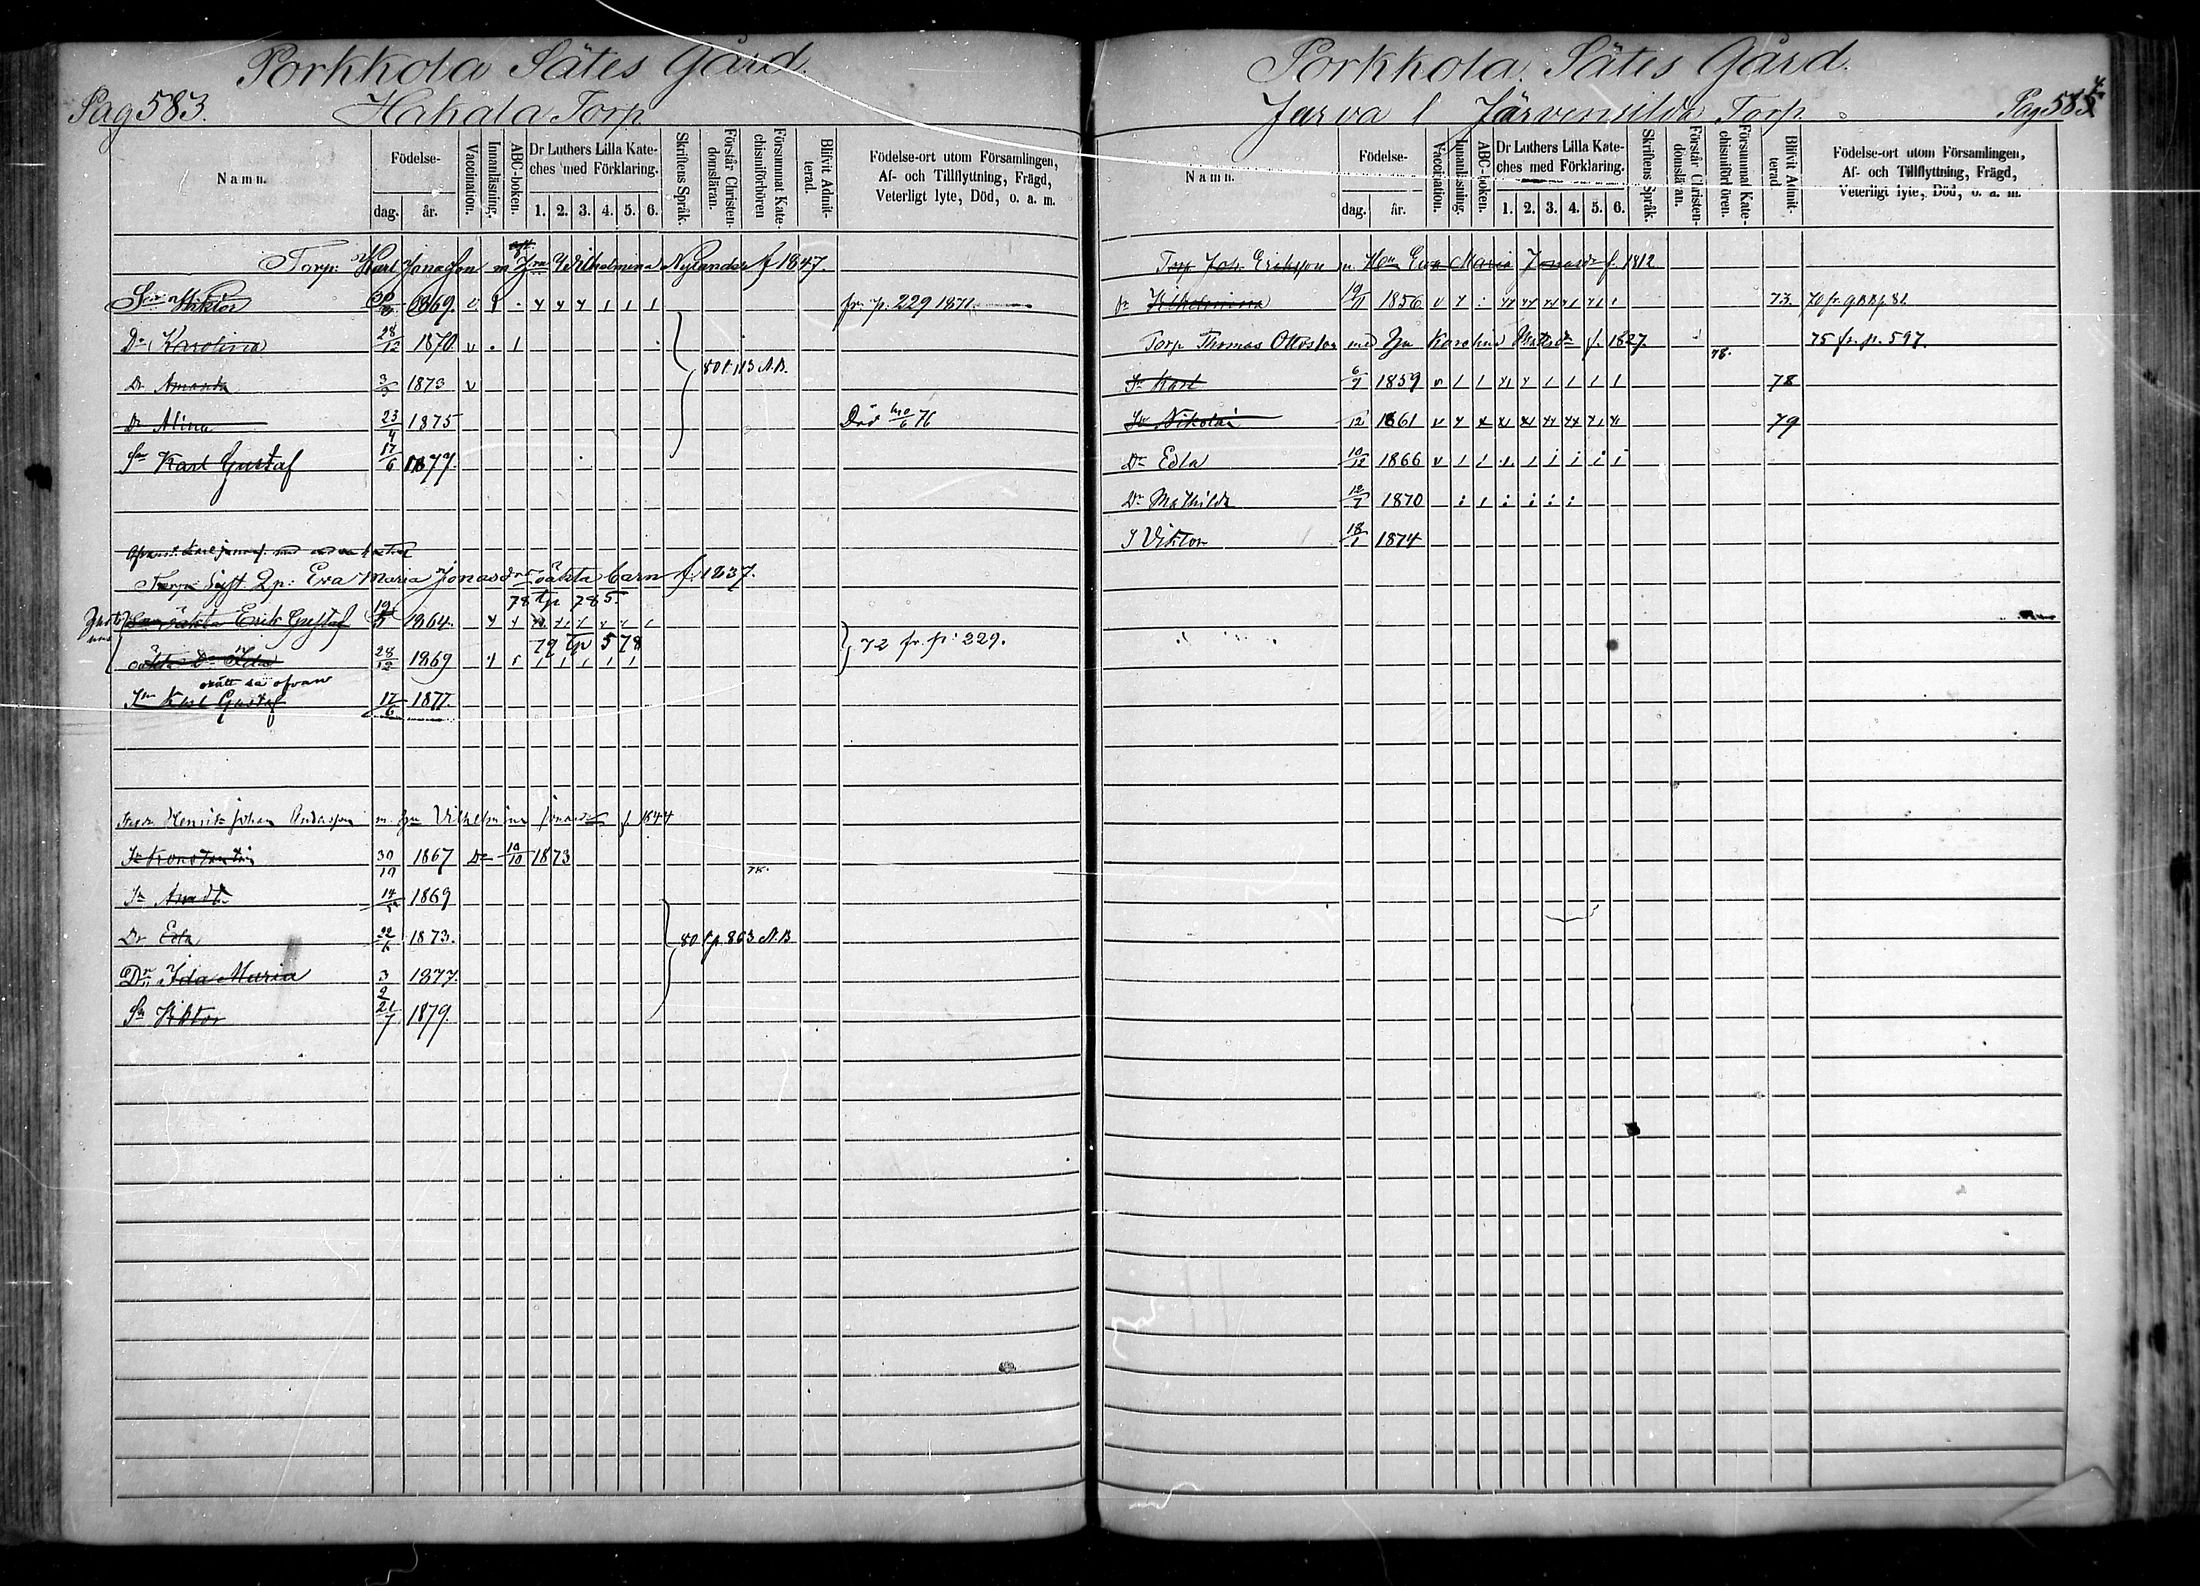 Porkkola Sätes Gård.
Pag 583. Hakala Torp
Namn. Födelse- dag. år. Vaccination. Innanläsning. ABC-boken. Dr Luthers Lilla Kateches med Förklaring. 1. 2. 3. 4. 5. 6. Skriftens Språk. Förstår Christendomsläran. Försummat Katechismiförhören Blifvit Admitterad. Födelse-ort utom Församlingen, Af- och Tillflyttning, Frägd, Veterligt lyte, Död, o. a. m.
Torp: Karl Jonasson m Hu Vilhelmina Nylander f 1847.
Son Viktor 1869. fr. p. 229 1871
Dr Karolina 28/12 1870 v
Dr Amanda 3/3 1873 v 80 t. p 113 N.B.
Dr Alina 23/4 1875 Död 76
Sn Karl Gustaf 17/6 1877.
Torp: Syst Qp: Eva Maria Jonasdr oäkta barn f. 1837.
78 tp 785.
oäkta Erik Gustaf 1864.
79 tp 578
oäkta Dr Ida 28/12 1869 72 fr. p: 229.
orätt se ofvan
Sn Karl Gustaf 17/6 1877.
Henrik Johan Andersson m. hu Vilhelmina Jonasdr f. 1844
Sn Konstantin 30/10 1867 Dr 10/10 1873
Sn 14 1869
Dr Edla 22/6 1873. 80 t p. 863 N.B
Dr Ida Maria 3/2 1877.
Sn Viktor 21/7 1879.
Porkkola Sätes Gård.
Jarva l Järvensilda Torp. Pag 584
Namn. Födelse- dag. år. Vaccination. Innanläsning. ABC-boken. Dr Luthers Lilla Kateches med Förklaring. 1. 2. 3. 4. 5. 6. Skriftens Språk. Förstår Christendomsläran. Försummat Katechismiförhören. Blifvit Admitterad Födelse-ort utom Församlingen, Af- och Tillflyttning, Frägd, Veterligt lyte, Död, o. a. m.
Torp Joh. Eriksson m. Hu Eva Maria Jonasdr f. 1812
Dr Vilhelmina 1856 v 73.
Torp Thomas Ottosson med hu Karolina Matsdr f. 1827. 78. 75 fr. p. 597.
Sn Karl 1859 78
Sn Nikolai 1861 v 79
Dr Edla 10/12 1866 v
Dr Mathilda 12/7 1870
S Viktor 18/1 1874